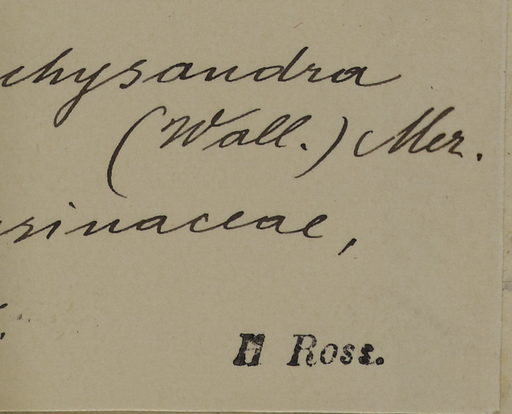 chysandra
(Wall.) Mer.
rsinaceae,
H Ross.